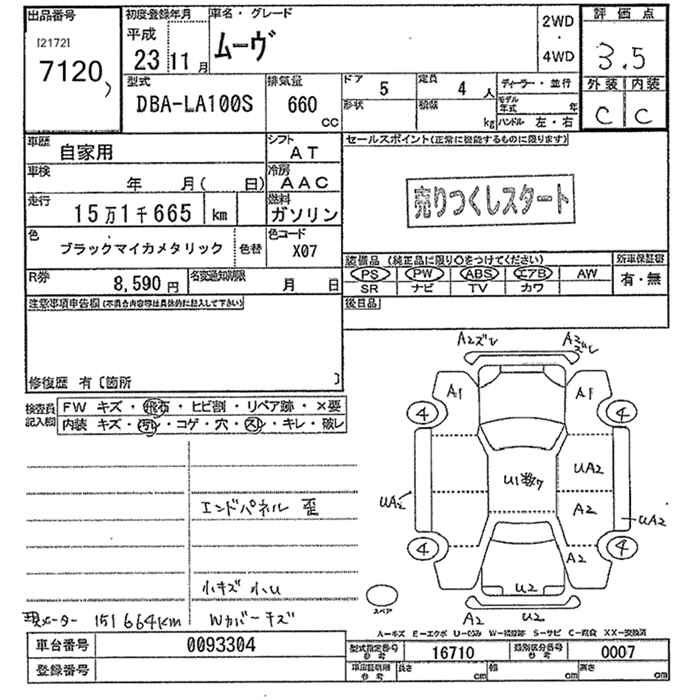 出品番号 初度登録年月 車名・グレード 2WD ・ 4WD 評価点
[21721
7120
平成 23 11月
ムーヴ
3.5
型式 DBA-LA100S
排気量 660 CC
ドア 5 定員 4 人 ディーラー・並行
形状 積載 kg モデル年式 年
ハンドル 左・右
外装 内装
C C
車歴 自家用
シフト AT
セールスポイント(正常に機能するものに限ります)
車検 年 月( 日)
冷房 AAC
売りつくしスタート
走行 15万1千665 km
燃料 ガソリン
色 ブラックマイカメタリック 色替
色コード X07
装備品 (純正品に限り○をつけてください) 新車保証書
PS PW ABS エアB AW 有・無
SR ナビ TV カワ
R券 8,590円
名変通知期限 月 日
後日品
注意事項申告欄(不具合内容等は具体的に記入して下さい)
修復歴 有〔箇所 〕
検査員記入欄
FW キズ・飛石・ヒビ割・リペア跡・×要
内装 キズ・汚れ・コゲ・穴・スレ・キレ・破レ
エンドパネル 歪
小キズ 小U
現メーター 151664KM Wカバーキズ
A2ズレ A2ズレ
A1 A1
4 4
U1数ヶ UA2
UA2 A2 UA2
4 4
A2
U2
A2 U2
スペア
A-キズ E-エクボ U-凹み W-補修跡 S-サビ C-腐食 XX-交換済
車台番号 0093304
型式指定番号 参考 16710 類別区分番号 参考 0007
登録番号
車庫証明用 参考 長さ cm 幅 cm 高さ cm